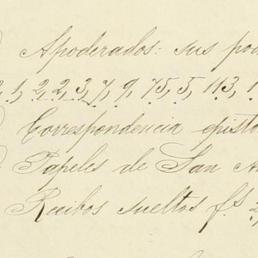 Apoderados: sus po
1, 2, 2, 3, 7, 9, 75, 5, 113, 1
Correspondencia episto
Papeles de San A
Recibos sueltos fs